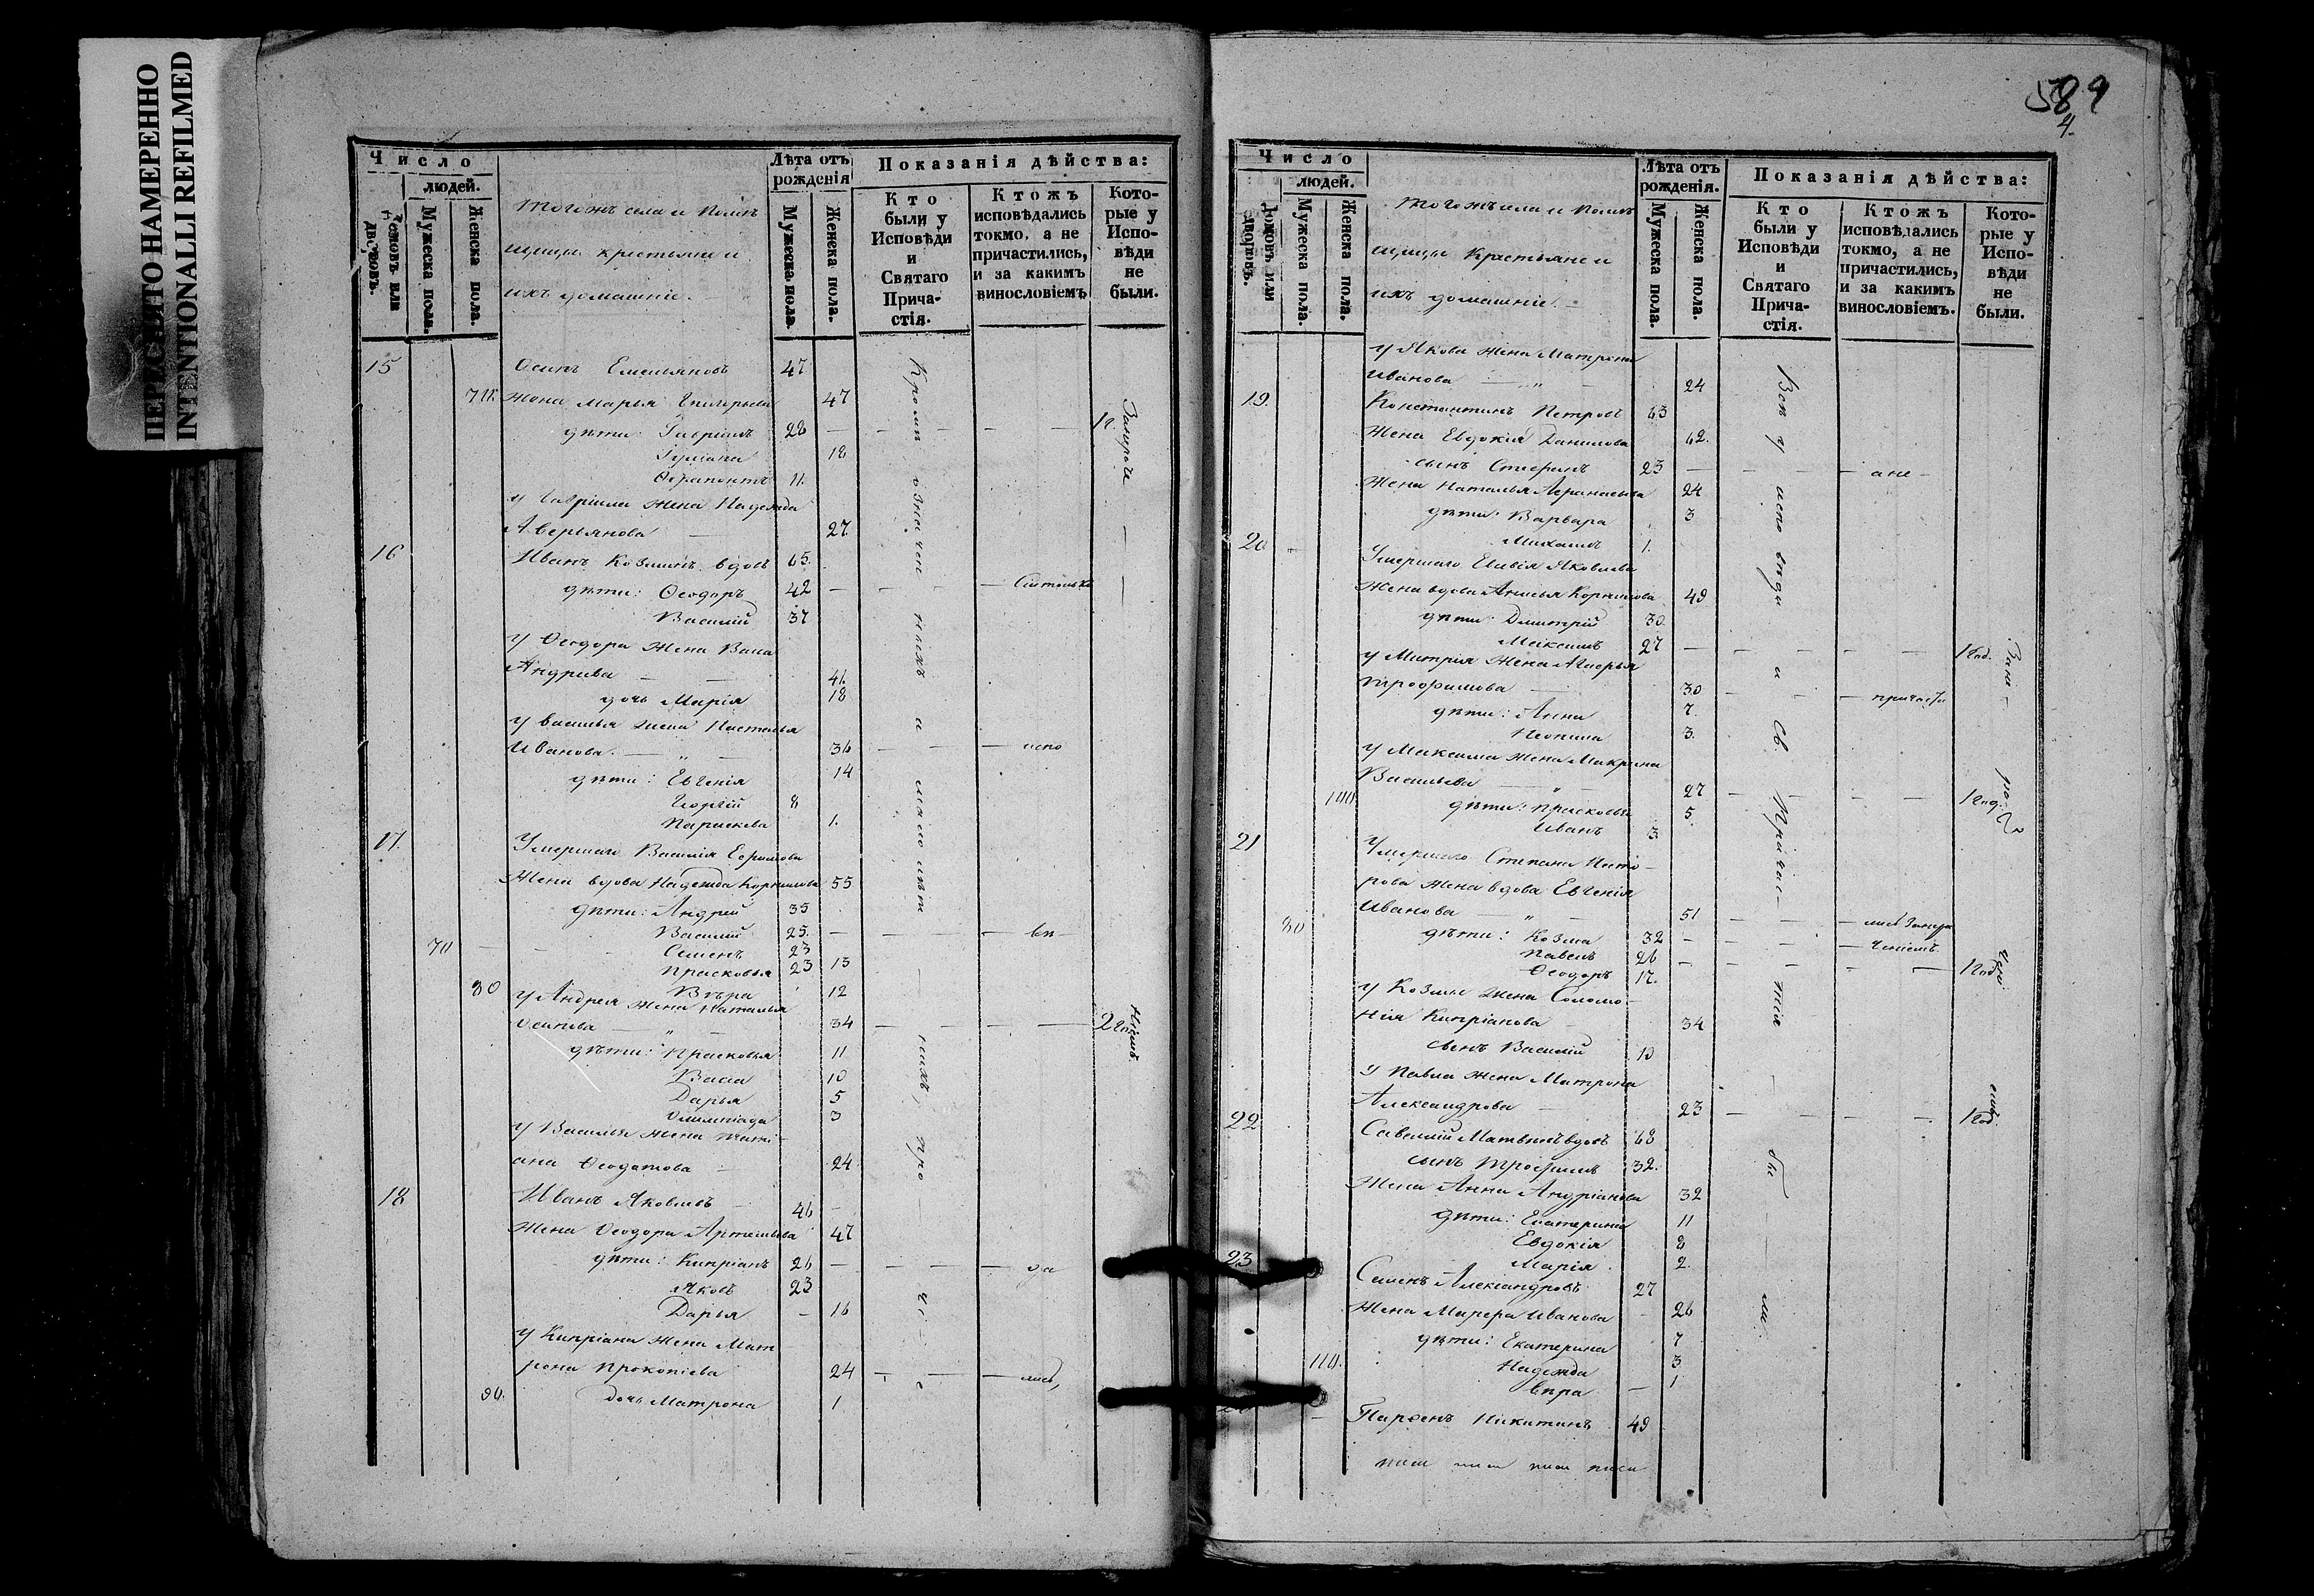 ПЕРЕСНЯТО НАМЕРЕННО
INTENTIONALLI REFILMED
Число
людей.
домовъ или дворовъ.
Мужеска пола.
Женска пола.
тогожъ села и помѣ
щицы крестьяне и
ихъ домашніе.
Лѣта отъ рожденія
Мужеска пола.
Женска пола.
Показанія дѣйства:
Кто были у Исповѣди и Святаго Прича-стія.
Ктожъ исповѣдались токмо, а не причастились, и за какимъ винословіемъ
Кото-рые у Испо-вѣди не были.
15 Осипъ Емельяновъ 47
Жена Марья Григорьева 47
дѣти: Гавріилъ 28 — — — — 1 г.
Іуліана 18
Ѳерапонтъ 11.
у Гавріила жена Надежда
Аверьянова — 27
16 Иванъ Козминъ вдовъ 65.
дѣти: Ѳеодоръ 42 — — —
Василій 37
У Ѳеодора жена Васса
Андреева — — 41.
дочь Марія 18
У Василья жена Наталья
Иванова — „ — 36 — — — испо
дѣти: Евгенія 14
Георгій 8
Параскева 1.
17. Умершаго Василія Ефимова
Жена вдова Надежда Корнилова 55
дѣти: Андрей 35
Василій 25. — — — вѣ—
70 — — Семенъ 23
Прасковья 23 13
80 Вѣра 12
У Андрея жена Наталья
Осипова — „ — 34 — — — 2 год.
дѣти: Прасковья 11
Васса 10
Дарья 5
Олимпіада 3
У Василья жена Тати-
ана Ѳеодотова — 24
18 Иванъ Яковлевъ — 46 —
Жена Ѳеодора Артемьева 47
дѣти: Кипріанъ 26 — — — да
Яковъ 23
Дарья — 16
У Кипріана жена Мат
рона Прокопіева 24 — — — лись,
90. дочь Матрона 1
Кромѣ означен ныхъ и малолѣт нихъ, про чіе
589
4.
Число
людей.
Домовъ или дворовъ.
Мужеска пола.
Женска пола.
Тогожъ села и помѣ
щицы Крестьяне и
ихъ домашніе. —
Лѣта отъ рожденія.
Мужеска пола.
Женска пола.
Показанія дѣйства:
Кто были у Исповѣди и Святаго Прича-стія.
Ктожъ исповѣдались токмо, а не причастились, и за какимъ винословіемъ.
Кото-рые у Испо-вѣди не были.
у Якова жена Матрена
Иванова — „ — 24
19. Константинъ Петровъ 63
Жена Евдокія Данилова 62.
сынъ Стефанъ 23 — — — — ане —
Жена Наталья Аѳанасьева 24
дѣти: Варвара 3
Михаилъ 1.
20 — Умершаго Яковлева
Жена вдова Анисья Корнилова 49
дѣти: Димитрій 30.
Максимъ 27 — — — — — 1 год.
У Митрія жена
Трофимова — 30 — — — причасти
дѣти: Анна 7.
3.
У Максима жена Макрина
Васильева — „ — 27 — — — — 1 год.
100 дѣти: Прасковья 5
Иванъ 3
21 Умершаго Степана Несто-
рова жена вдова Евгенія
Иванова — „ — 51 — — —
80 дѣти: Козма 32 — — — — ченіемъ.
Павелъ 26 — — — — — 1 год
Ѳеодоръ 17.
У Козмы жена Соломо-
нія Кипріанова 34
сынъ Василій 10
У Павла жена Матрона
Александрова — 23 — — — — 1 год.
22 Савелій Матвѣевъ вдовъ 68
сынъ Трофимъ 32.
Жена Анна Андріанова 32
дѣти: Екатерина 11
Евдокія 8
Марія 2.
23 Семенъ Александровъ 27
Жена Марѳа Иванова — 26
дѣти: Екатерина 7
110. Надежда 3
Вѣра — 1
Парѳенъ Никитинъ 49
Всѣ у исповѣди и Св. Причас— тія — бы — ли.